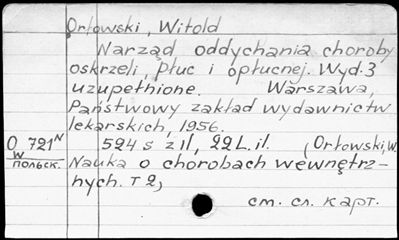 Orłowski, Witold
Narząd oddychania choroby
oskrzeli, płuc i opłucnej. Wyd. 3
uzupełnione. Warszawa,
Państwowy zakład wydawnictw
lekarskich, 1956.
O 721 N
W
польск.
524 s z il, 22 L. il. (Orłowski, W.
Nauka o chorobach wewnętrz-
nych. T 2)
см. сл. карт.